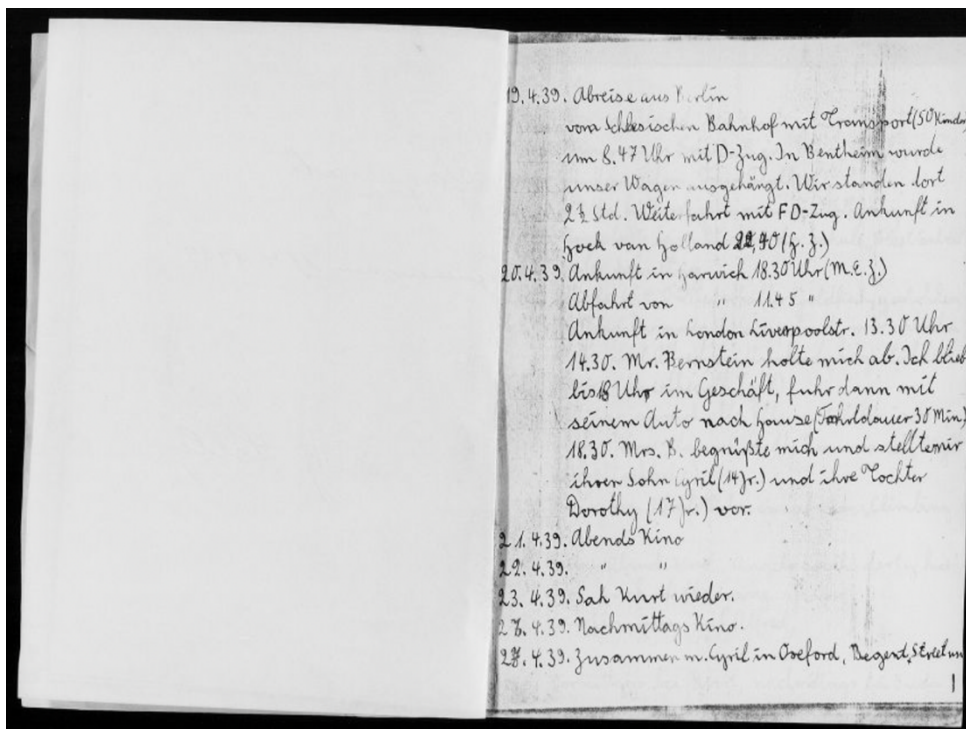 19.4.39. Abreise aus Berlin
vom Schlesischen Bahnhof mit Transport (50 Kinder
um 8.47 Uhr mit D-Zug. In Bentheim wurde
unser Wagen ausgehängt. Wir standen dort
2½ Std. Weiterfahrt mit FD-Zug. Ankunft in
Hoek van Holland 22,40 (h. z.)
20.4.39. Ankunft in Harwich 18.30 Uhr (M.E.Z.)
Abfahrt von " 11.45 "
Ankunft in London Liverpoolstr. 13.30 Uhr
14.30. Mr. Bernstein holte mich ab. Ich blieb
bis 18 Uhr im Geschäft, fuhr dann mit
seinem Auto nach Hause (Fahrtdauer 30 Min)
18.30. Mrs. B. begrüßte mich und stellte mir
ihren Sohn Cyril (14 Jr.) und ihre Tochter
Dorothy (17 Jr.) vor.
21.4.39. Abends Kino
22.4.39. " "
23.4.39. Sah Kurt wieder.
4.39. Nachmittags Kino.
4.39. Zusammen m. Cyril in Oxeford, Regent, Street un
1